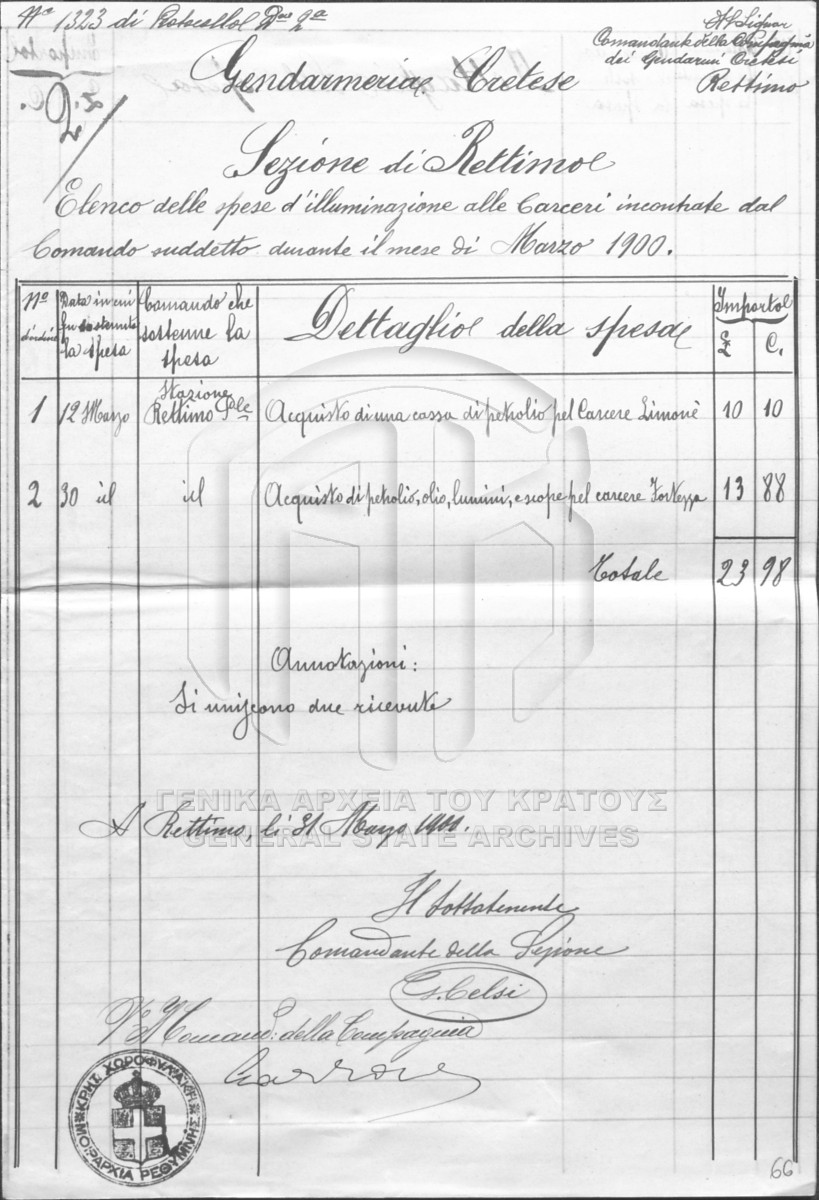 Nº 1323 di Protocollo Dne 2a
Al Signor
Comandante della Compagnia
dei Gendarmi Cretesi
Rettimo
Gendarmeria Cretese
Sezione di Rettimo
Elenco delle spese d'illuminazione alle Carceri incontrate dal
Comando suddetto durante il mese di Marzo 1900.
Nº d'ordine | Data in cui fu sostenuta la spesa | Comando che sostenne la spesa | Dettaglio della spesa | Importo £ C.
1 | 12 Marzo | Stazione Rettimo Pale | Acquisto di una cassa di petrolio pel Carcere Limonè | 10 | 10
2 | 30 id | id | Acquisto di petrolio, olio, lumini, e scope pel carcere Fortezza | 13 | 88
Totale 23 98
Annotazioni:
Si uniscono due ricevute
ΓΕΝΙΚΑ ΑΡΧΕΙΑ ΤΟΥ ΚΡΑΤΟΥΣ
A Rettimo, li 31 Marzo 1900.
GENERAL STATE ARCHIVES
Il Sottotenente
Comandante della Sezione
Celsi
Vº Il Comand: della Compagnia
ΚΡΗΤ. ΧΩΡΟΦΥΛΑΚΗ
ΜΟΙΡΑΡΧΙΑ ΡΕΘΥΜΝΗΣ
66